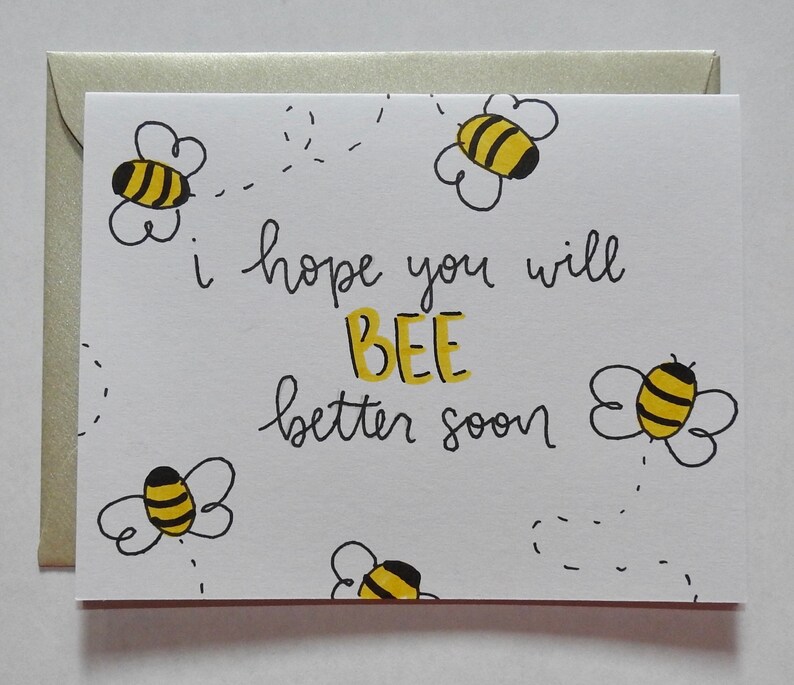 i hope you will
BEE
better soon